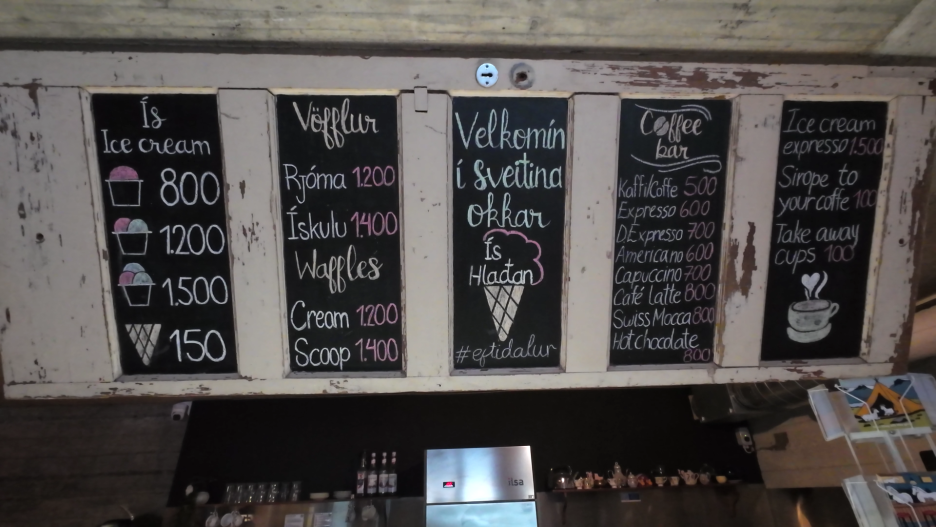 Ís
Ice cream
800
1.200
1.500
150
Vöfflur
Rjóma 1.200
Ískulu 1.400
Waffles
Cream 1.200
Scoop 1.400
Velkomin
í Sveitina
okkar
Ís
Hlaðan
#efstidalur
Coffee
bar
Kaffi/Coffe 500
Expresso 600
D.Expresso 700
Americano 600
Capuccino 700
Café latte 800
Swiss Mocca 800
Hot chocolate
800
Ice cream
expresso 1.500
Sirope to
your coffe 100
Take away
cups 100
ilsa